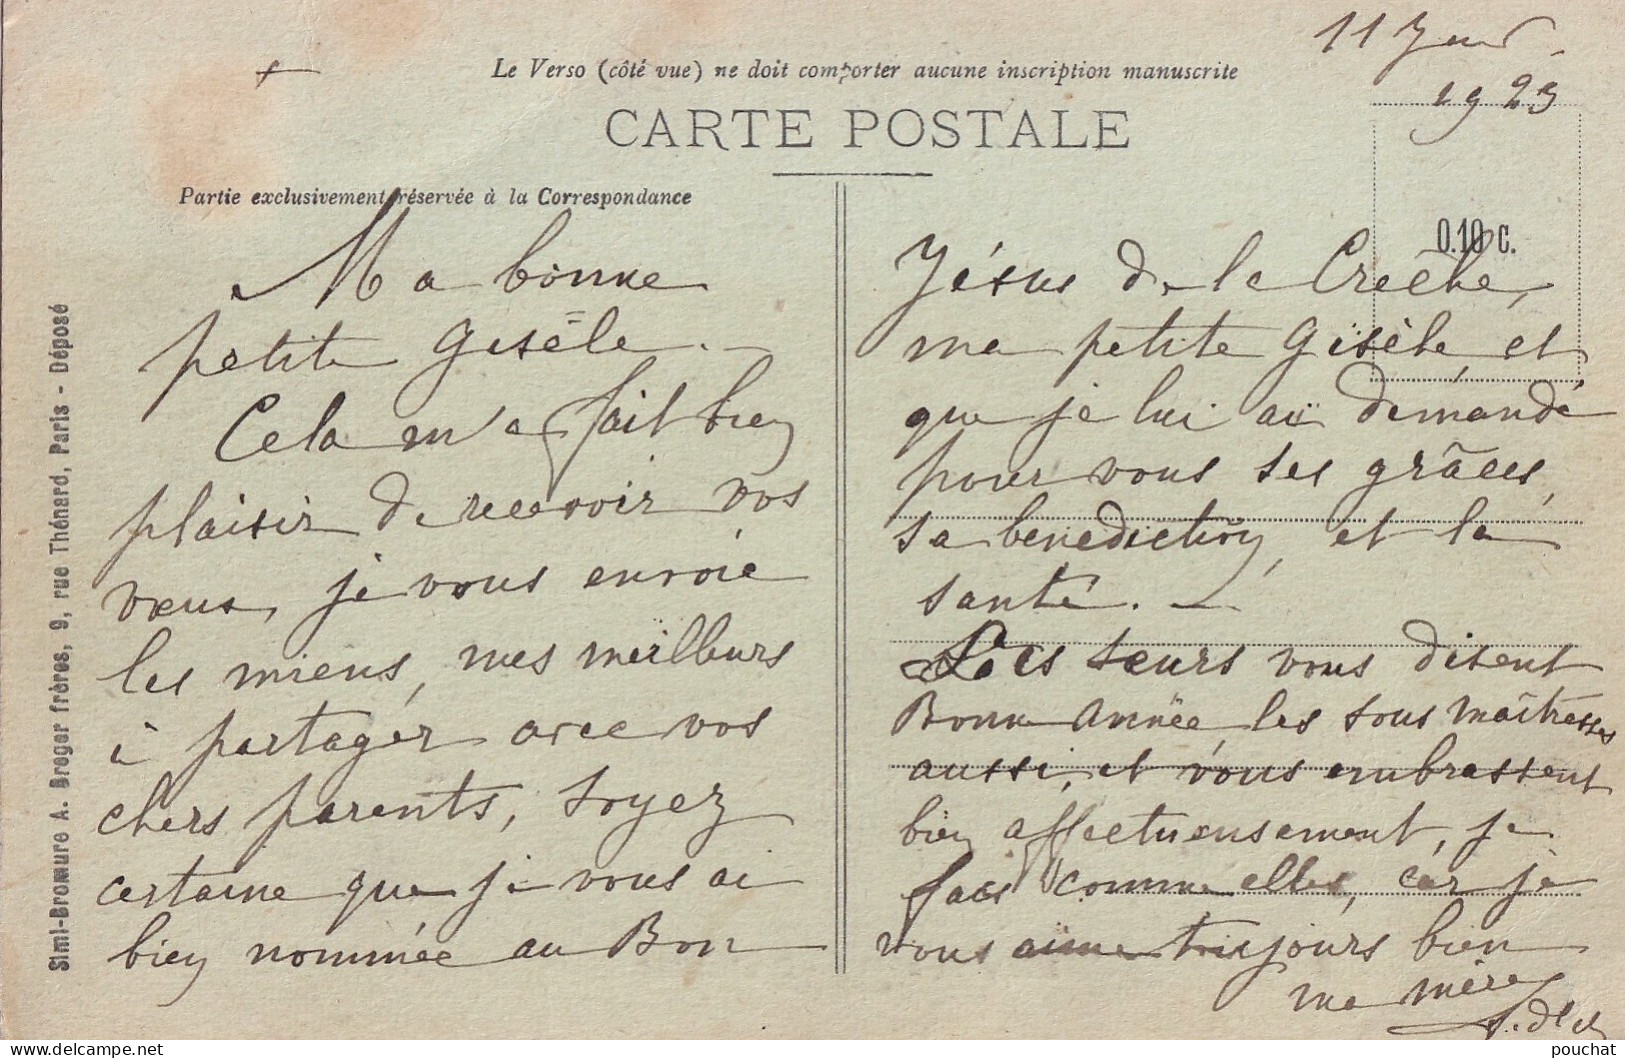 11 Janv.
1923
Le Verso (côté vue) ne doit comporter aucune inscription manuscrite
CARTE POSTALE
Partie exclusivement réservée à la Correspondance
0.10 C.
Simi-Bromure A. Breger frères, 9, rue Thénard, Paris - Déposé
Ma bonne
petite Gisèle.
Cela m'a fait bien
plaisir de recevoir vos
vœux, je vous envoie
les miens, mes meilleurs
à partager avec vos
chers parents, soyez
certaine que je vous ai
bien nommée au Bon
Jésus de la Crèche,
ma petite Gisèle et
que je lui ai demandé
pour vous ses grâces,
sa bénédiction, et la
santé.
Soeurs vous disent
Bonne Année, les sous maîtresses
aussi, et vous embrassent
bien affectueusement, je
fais comme elles, car je
vous aime toujours bien
ma mère
pouchat